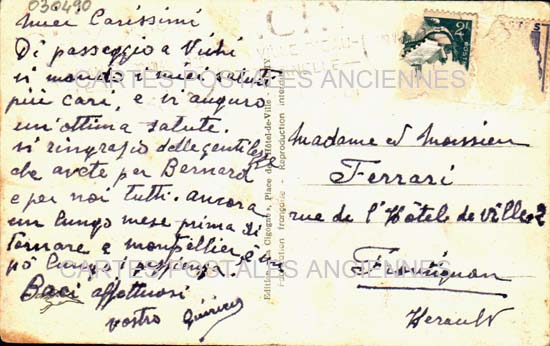 030490
Miei Carissimi
Di passeggio a Vichi
vi mando i miei saluti
più cari, e vi auguro
un'ottima salute.
vi ringrazio delle gentilezze
che avete per Bernard
e per noi tutti. ancora
un lungo mese prima di
tornare a montpellier è un
pò lungo
Baci affettuosi
vostro
CARTES POSTALES ANCIENNES
CARTES POSTALES ANCIENNES
Cigognes, Place de l'Hôtel-de-Ville -
française - Reproduction
2F
Madame et Monsieur
Ferrari
rue de l'Hôtel de ville 2
Frontignan
Herault